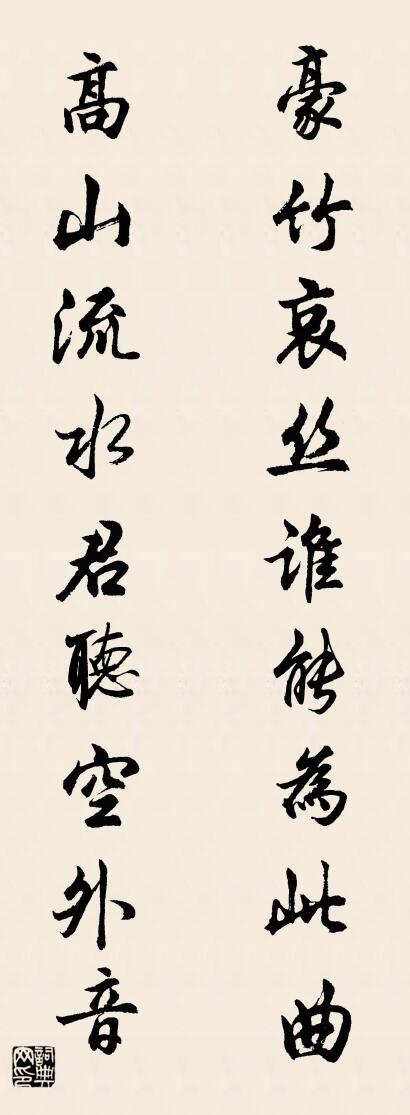 豪竹哀丝谁能為此曲
髙山流水君聽空外音
詞典网印